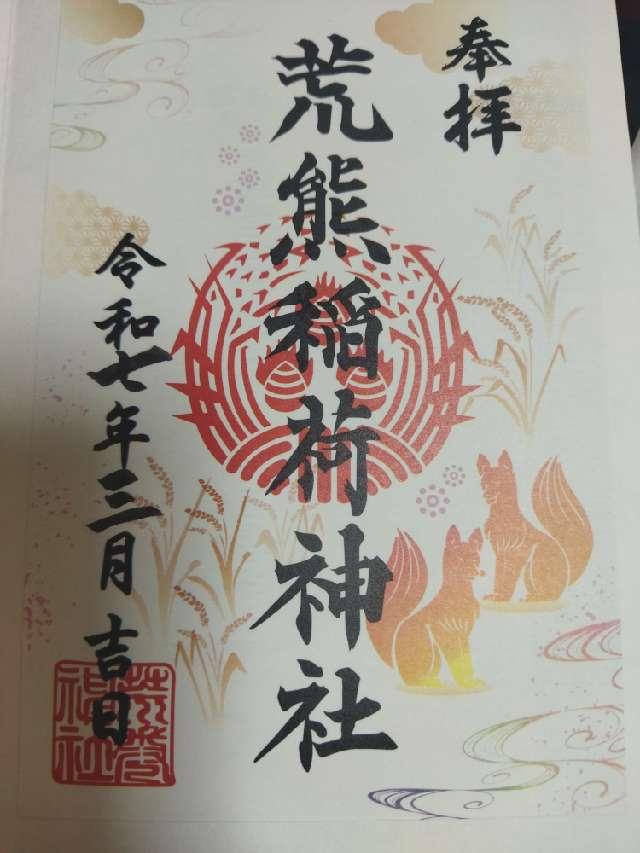 奉拝
荒熊稲荷神社
令和七年三月吉日
荒熊
神社